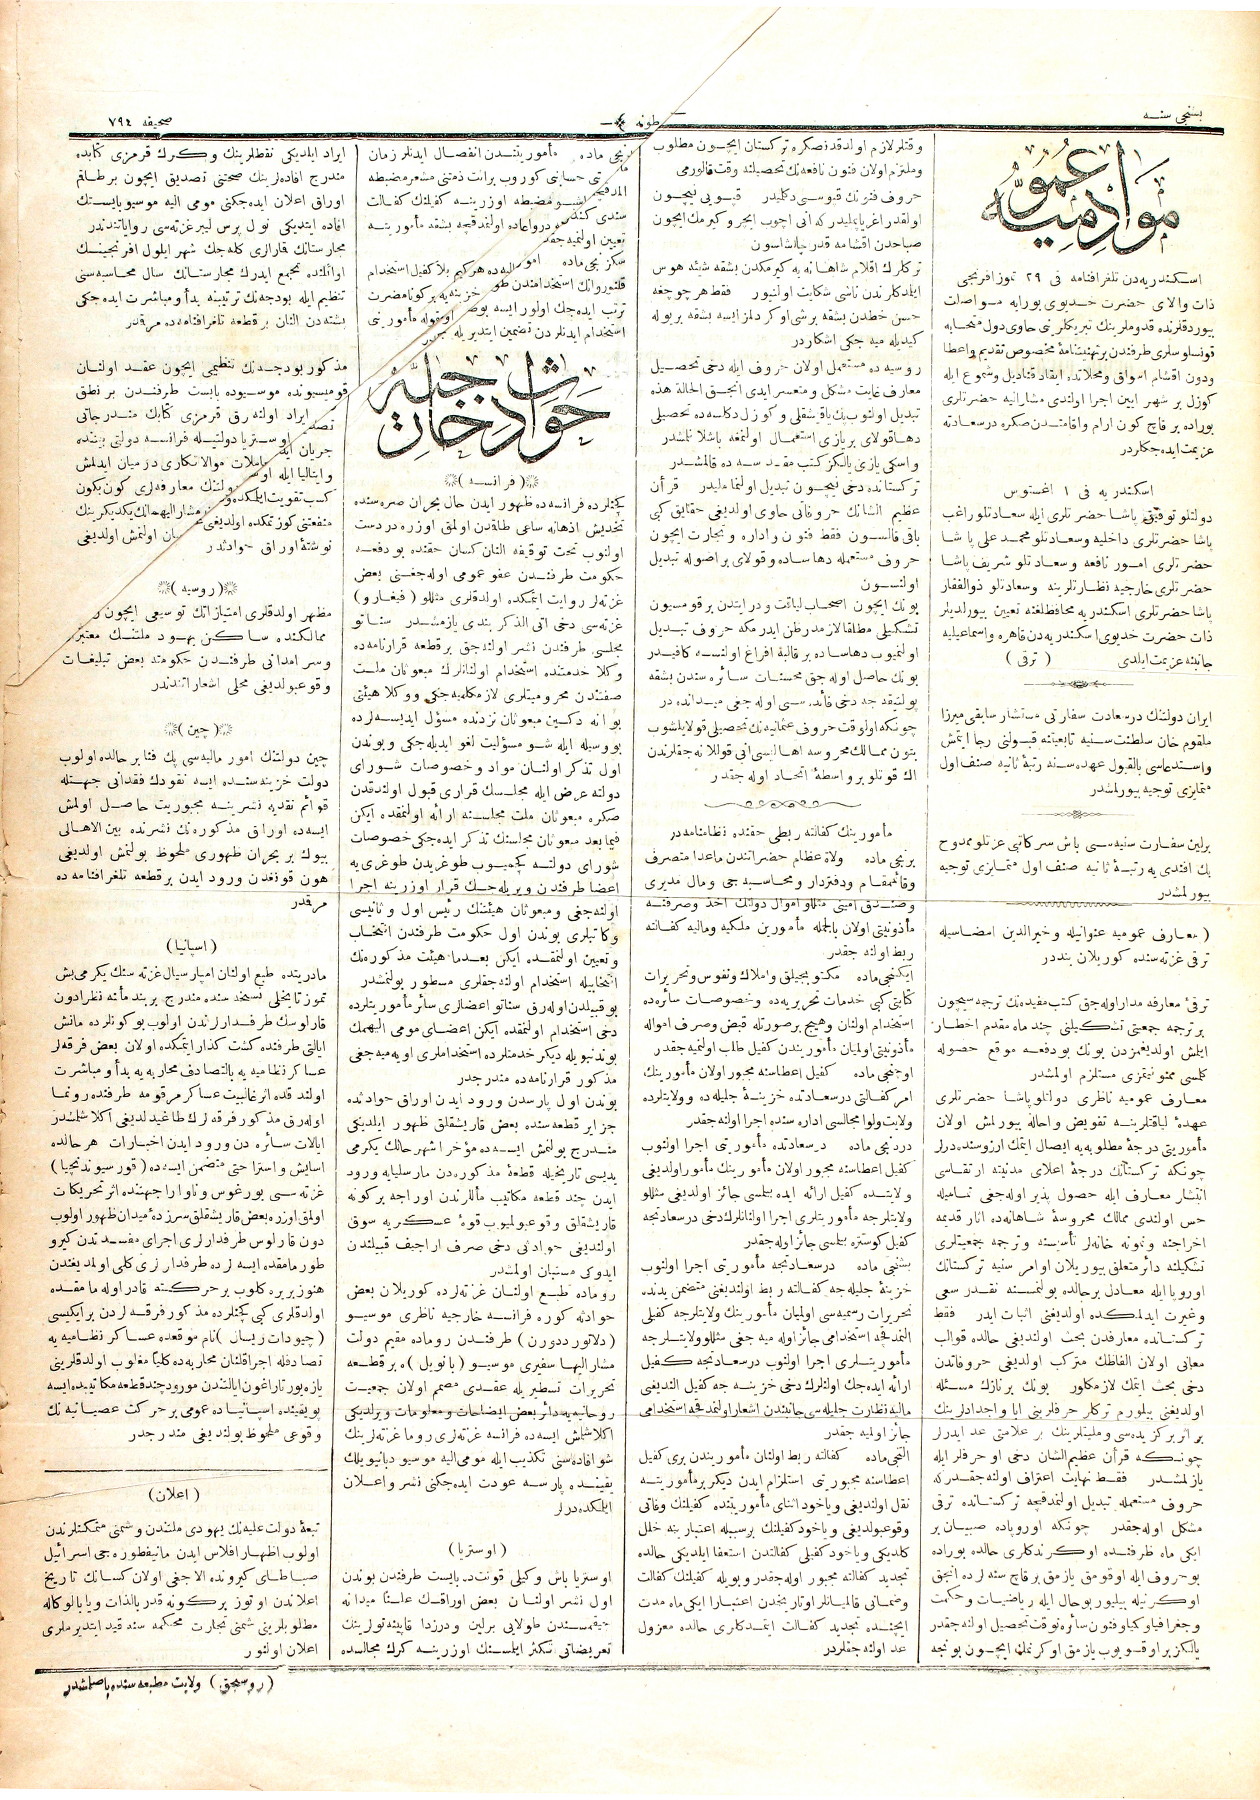 بشنجی سنه
طونه
صحیفه ٧٩٤
مواد عمومیه
اسکندریه‌دن تلغرافنامه فی ٢٩ تموز افرنجی
ذات والای حضرت خدیوی بورایه مواصلت
بیوردقلرنده قدوملرینك تبریکلرینی حاوی دول متحابه
قونسلوسلری طرفندن بر تهنیتنامهٔ مخصوص تقدیم واعطا
ودون اقشام اسواق ومحلاتده ایقاد قنادیل وشموع ایله
کوزل بر شهر ایین اجرا اولندی مشارالیه حضرتلری
بوراده بر قاچ کون ارام واقامتدن صکره درسعادته
عزیمت ایده‌جکلردر
اسکندریه فی ١ اغستوس
دولتلو توفیق پاشا حضرتلری ایله سعادتلو راغب
پاشا حضرتلری داخلیه وسعادتلو محمد علی پاشا
حضرتلری امور نافعه وسعادتلو شریف پاشا
حضرتلری خارجیه نظارتلرینه وسعادتلو ذوالفقار
پاشا حضرتلری اسکندریه محافظلغنه تعیین بیورلدیلر
ذات حضرت خدیوی اسکندریه‌دن قاهره واسماعیلیه
جانبنه عزیمت ایلدی (ترقی)
ایران دولتنك درسعادت سفارتی مستشار سابقی میرزا
ملقوم خان سلطنت سنیه تابعیتنه قبولنی رجا ایتمش
واستدعاسی بالقبول عهده‌سنه رتبهٔ ثانیه صنف اول
متمایزی توجیه بیورلمشدر
برلین سفارت سنیه‌سی باش سر کاتبی عزتلو ممدوح
بك افندی‌یه رتبهٔ ثانیه صنف اول متمایزی توجیه
بیورلمشدر
(معارف عمومیه عنوانیله وخیرالدین امضاسیله
ترقی غزته‌سنده کوریلان بنددر
ترقئ معارفه مدار اوله‌جق کتب مفیده‌نك ترجمه‌سیچون
بر ترجمه جمعیتی تشکیلنی چند ماه مقدم اخطار
ایلمش اولدیغمزدن بونك بودفعه موقع حصوله
کلمسی ممنونیتمزی مستلزم اولمشدر
معارف عمومیه ناظری دولتلو پاشا حضرتلری
عهدهٔ لیاقتلرینه تفویض واحاله بیورلمش اولان
مأموریتی درجهٔ مطلوبه‌یه ایصال ایتمك ارزوسنده‌درلر
چونکه ترکستانك درجهٔ اعلای مدنیته ارتقاسی
انتشار معارف ایله حصول پذیر اوله‌جغی تمامیله
حس اولندی ممالك محروسهٔ شاهانه‌ده اثار قدیمه
اخراجنه ونمونه خانه‌لر تأسیسنه وترجمه جمعیتلری
تشکیلنه دائر متعلق بیوریلان اوامر سنیه ترکستانك
اوروپا ایله معادل بر حالده بولنمسنه نقدر سعی
وغیرت ایدلمکده اولدیغنی اثبات ایدر فقط
ترکستانده معارفدن بحث اولندیغی حالده قوالب
معانی اولان الفاظك مترکب اولدیغی حروفاتدن
دخی بحث ایتمك لازمکلور بونك بر نازك مسئله
اولدیغنی بیلورم ترکلر حرفلرینی ابا واجدادلرینك
بر اثر برکزیده‌سی وملیتلرینك بر علامتی عد ایدرلر
چونکه قرآن عظیم‌الشان دخی او حرفلر ایله
یازلمشدر فقط نهایت اعتراف اولنه‌جقدر که
حروف مستعمله تبدیل اولنمدقچه ترکستانده ترقی
مشکل اوله‌جقدر چونکه اوروپاده صبیان بر
ایکی ماه ظرفنده اوکرندکلری حالده بوراده
بو حروف ایله اوقومق یازمق بر قاچ سنه‌لرده انجق
اوکرنیله بیلیور بوحال ایله ریاضیات وحکمت
وجغرافیا وکیمیا وفنون سائره نوقت تحصیل اولنه‌جقدر
یالکز بر اوقویوب یازمق اوکرنمك ایچون بونجه
وقتلر لازم اولدقدنصکره ترکستان ایچون مطلوب
وملتزم اولان فنون نافعه‌نك تحصیلنه وقت قالورمی
حروف فنونك قپوسی دکلیدر قپویی نیچون
اولقدر اغر یاپملیدر که انی اچوب ایچرو کیرمك ایچون
صباحدن اقشامه قدر چالشلسون
ترکلرك اقلام شاهانه‌یه کیرمکدن بشقه شیئه هوس
ایلدکلرندن ناشی شکایت اولنیور فقط هر چوجغه
حسن خطدن بشقه برشی اوکردلمز ایسه بشقه بر یوله
کیدیله میه‌جکی اشکاردر
روسیه‌ده مستعمل اولان حروف ایله دخی تحصیل
معارف غایت مشکل ومتعسر ایدی انجق الحالة هذه
تبدیل اولنوب پك یاقشقلی وکوزل دکلسه‌ده تحصیلی
دها قولای بر یازی استعمال اولنمغه باشلانلمشدر
واسکی یازی یالکز کتب مقدسه‌ده قالمشدر
ترکستانده دخی نیچون تبدیل اولنماملیدر قرآن
عظیم‌الشانك حروفاتی حاوی اولدیغی حقایق کبی
باقی قالسون فقط فنون واداره وتجارت ایچون
حروف مستعمله دها ساده وقولای بر اصوله تبدیل
اولنسون
بونك ایچون اصحاب لیاقت ودرایتدن بر قومسیون
تشکیلی مطلقا لازمدر ظن ایدرمکه حروف تبدیل
اولنمیوب دها ساده بر قالبه افراغ اولنسه کافیدر
بونك حاصل اوله‌جق محسنات سائره‌سندن بشقه
پولتیقه‌جه دخی فائده‌سی اوله‌جغی میدانده‌در
چونکه اولوقت حروف عثمانیه‌نك تحصیلی قولایلشوب
بتون ممالك محروسه اهالیسی انی قوللانه‌جقلرندن
اك قوتلو بر واسطهٔ اتحاد اوله‌جقدر
مأمورینك کفالته ربطی حقنده نظامنامه‌در
برنجی ماده ولاة عظام حضراتندن ماعدا متصرف
وقائمقام ودفتردار ومحاسبه‌جی ومال مدیری
وصندق امینی مثللو اموال دولتك اخذ وصرفنه
مأذونیتی اولان بالجمله مأمورین ملکیه ومالیه کفالته
ربط اولنه‌جقدر
ایکنجی ماده مکتوبجیلق واملاك ونفوس وتحریرات
کتابتی کبی خدمات تحریریه‌ده وخصوصات سائره‌ده
استخدام اولنان وهیچ بر صورتله قبض وصرف امواله
مأذونیتی اولمیان مأموریندن کفیل طلب اولنمیه‌جقدر
اوچنجی ماده کفیل اعطاسنه مجبور اولان مأمورینك
امر کفالتی درسعادتده خزینهٔ جلیله‌ده وولایتلرده
ولایت ولوا مجالسی اداره‌سنده اجرا اولنه‌جقدر
دردنجی ماده درسعادتده مأموریتی اجرا اولنوب
کفیل اعطاسنه مجبور اولان مأمورینك مأمور اولدیغی
ولایتده کفیل ارائه ایده بیلمسی جائز اولدیغی مثللو
ولایتلرجه مأموریتلری اجرا اولنانلرك دخی درسعادتجه
کفیل کوستره بیلمسی جائز اوله‌جقدر
بشنجی ماده درسعادتجه مأموریتی اجرا اولنوب
خزینهٔ جلیله‌جه کفالته ربط اولندیغنی متضمن یدنده
تحریرات رسمیه‌سی اولمیان مأمورینك ولایتلرجه کفیلی
النمدقچه استخدامی جائز اوله‌میه‌جغی مثللو ولایتلرجه
مأموریتلری اجرا اولنوب درسعادتجه کفیل
ارائه ایده‌جك اولنلرك دخی خزینه‌جه کفیل الندیغی
مالیه نظارت جلیله‌سی جانبندن اشعار اولنمدقچه استخدامی
جائز اولمیه‌جقدر
التنجی ماده کفالته ربط اولنان مأموریندن بری کفیل
اعطاسنه مجبوریتی استلزام ایدن دیکر بر مأموریته
نقل اولندیغی ویاخود اثنای مأموریتنده کفیلنك وفاتی
وقوعبولدیغی ویاخود کفیلنك بر سببله اعتبارینه خلل
کلدیکی ویاخود کفیلی کفالتدن استعفا ایلدیکی حالده
تجدید کفالته مجبور اوله‌جقدر وبویله کفیلنك کفالت
وضمانی قالمیانلر اوتاریخدن اعتبارا ایکی ماه مدت
ایچنده تجدید کفالت ایتمدکلری حالده معزول
عد اولنه‌جقلردر
نجی ماده مأموریتندن انفصال ایدنلر زمان
تی حسابنی کوروب برائت ذمتنی مشعر مضبطه
اشبو مضبطه اوزرینه کفیلنك کفالت
سندی کندو درو اعاده اولنمدقچه بشقه مأموریته
تعیین اولنمیه‌جقدر
سکزنجی ماده امو الیه‌ده هرکیم بلا کفیل استخدام
استخدامندن طو خزینه‌یه برکونا مضرت
ترتب ایده‌جك اولور ایسه بو مقوله مأمورینی
استخدام ایدنلردن تضمین ایتدیریله‌جکدر
حوادث خارجیه
(فرانسه)
کچنلرده فرانسه‌ده ظهور ایدن حال بحران صره‌سنده
تخدیش اذهانه ساعی طاقدن اولمق اوزره در دست
اولنوب تحت توقیفه النان کسان حقنده بو دفعه
حکومت طرفندن عفو عمومی اوله‌جغنی بعض
غزته‌لر روایت ایتمکده اولدقلری مثللو (فیغارو)
غزته‌سی دخی اتی الذکر بندی یازمشدر سناتو
مجلسی طرفندن نشر اولنه‌جق بر قطعه قرارنامه‌ده
وکلا خدمتنده استخدام اولنانلرك مبعوثان ملت
صفتندن محرومیتلری لازمکلمیه‌جکی ووکلا هیئتی
بو آنه دکین مبعوثان نزدنده مسؤل ایدیسه‌لرده
بووسیله ایله شو مسؤلیت لغو ایدیله‌جکی وبوندن
اول تذکر اولنان مواد وخصوصات شورای
دولته عرض ایله مجلسك قراری قبول اولندقدن
صکره مبعوثان ملت مجلسنه ارائه اولنمقده ایکن
فیما بعد مبعوثان مجلسنك تذکر ایده‌جکی خصوصات
شورای دولته کچمیوب طوغریدن طوغری‌یه
اعضا طرفندن ویریله‌جك قرار اوزرینه اجرا
اولنه‌جغی ومبعوثان هیئتنك رئیس اول وثانیسی
وکاتبلری بوندن اول حکومت طرفندن انتخاب
وتعیین اولنمقده ایکن بعدما هیئت مذکوره‌نك
انتخابیله استخدام اولنه‌جقلری مسطور بولنمشدر
بو قبیلدن اوله‌رق سناتو اعضالری سائر مأموریتلرده
دخی استخدام اولنمقده ایکن اعضای مومی الیهمك
بوندنبویله دیکر خدمتلرده استخداملری اویه‌میه‌جغی
مذکور قرارنامه‌ده مندرجدر
بوندن اول پارسدن ورود ایدن اوراق حوادثده
جزایر قطعه‌سنده بعض قاریشقلق ظهور ایلدیکی
مندرج بولنمش ایسه‌ده مؤخرا شهر حالك یکرمی
یدیسی تاریخیله قطعهٔ مذکوره‌دن مارسلیایه ورود
ایدن چند قطعه مکاتیب مأللرندن اوراجه برکونه
قاریشقلق وقوعبولمیوب قوهٔ عسکریه سوق
اولندیغی حوادثی دخی صرف اراجیف قبیلندن
ایدوکی مستبان اولمشدر
روماده طبع اولنان غزته‌لرده کوریلان بعض
حوادثه کوره فرانسه خارجیه ناظری موسیو
(دلاتور ددورن) طرفندن روماده مقیم دولت
مشارالیها سفیری موسیو (بانویل)ه بر قطعه
تحریرات تسطیریله عقدی مصمم اولان جمعیت
روحانیه‌یه دائر بعض ایضاحات ومعلومات ویرلدیکی
اکلاشلمش ایسه‌ده فرانسه غزته‌لری روما غزته‌لرینك
شو افاده‌سنی تکذیب ایله مومی الیه موسیو دبانویلك
یقینده پارسه عودت ایده‌جکنی نشر واعلان
ایلمکده‌درلر
(اوستریا)
اوستریا باش وکیلی قونت د بایست طرفندن بوندن
اول نشر اولنان بعض اوراقك علنا میدانه
چیقمسندن طولایی برلین ودرزدا قابینه‌تولرینك
تعریضاتی تکثر ایلمسنك اوزرینه کرك مجالسده
ایراد ایلدیکی نقطلرینك وکرك قرمزی کتابده
مندرج افاده‌لرینك صحتنی تصدیق ایچون بر طاقم
اوراق اعلان ایده‌جکنی مومی الیه موسیو بایستك
افاده ایتدیکی نول پرس لیبر غزته‌سی روایاتندندر
مجارستانك قارازی کله‌جك شهر ایلول افرنجینك
اوائلنده تجمع ایدرك مجارستانك سال محاسبه‌سنی
تنظیم ایله بودجه‌نك ترتیبنه بدأ ومباشرت ایده‌جکی
پشته‌دن النان بر قطعه تلغرافنامه‌ده مرقدر
مذکور بودجه‌نك تنظیمی ایچون عقد اولنان
قومیسیونده موسیو ده بایست طرفندن بر نطق
ایراد اولنه‌رق قرمزی کتابك مندرجاتی
اوستریا دولتیله فرانسه دولتی بیننده
جریان ایدن معاملات موالاتکاری درمیان ایدلمش
وایتالیا ایله اوس دولتنك معارفه‌لری کون بکون
کسب تقویت ایلمکده و مشارالیهمانك یکدیکرینك
منفعتنی کوزتمکده اولدیغی بیان اولنمش اولدیغی
نوشتهٔ اوراق حوادثدر
(روسیه)
مظهر اولدقلری امتیازاتك توسیعی ایچون ر
ممالکنده ساکن یهود ملتنك معتبر
وسرامدانی طرفندن حکومته بعض تبلیغات
وقوعبولدیغی محلی اشعاراتندندر
(چین)
چین دولتنك امور مالیه‌سی پك فنا بر حالده اولوب
دولت خزینه‌سنده ایسه نقودك فقدانی جهتله
قوائم نقدیه نشرینه مجبوریت حاصل اولمش
ایسه‌ده اوراق مذکوره‌نك نشرنده بین الاهالی
بیوك بر بحران ظهوری ملحوظ بولنمش اولدیغی
هون قونغدن ورود ایدن بر قطعه تلغرافنامه‌ده
مرقدر
(اسپانیا)
مادریدده طبع اولنان امپارسیال غزته‌سنك یکرمی بش
تموز تاریخلی نسخه‌سنده مندرج بر بند مأنه نظرا دون
قارلوسك طرفدارلرندن اولوب بو کونلرده مانش
ایالتی طرفنده کشت کذار ایتمکده اولان بعض فرقه‌لر
عساکر نظامیه‌یه بالتصادف محاربه‌یه بدأ ومباشرت
اولندقده اثر غالبیت عساکر مرقومه طرفنده رونما
اوله‌رق مذکور فرقه‌لرك طاغیدلدیغی اکلاشلمشدر
ایالات سائره‌دن ورود ایدن اخبارات هر حالده
اسایش واستراحتی متضمن ایسه‌ده (قورسپوندنچیا)
غزته‌سی بورغوس وناوارا جهتنده اثر تحریکات
اولمق اوزره بعض قاریشقلق سرزدهٔ میدان ظهور اولوب
دون قارلوس طرفدارلری اجرای مفسدتدن کیرو
طورمامقده ایسه‌لرده طرفدارلری کلی اولمدیغندن
هنوز بر یره کلوب بر حرکته قادر اوله‌مامقده
اولدقلری کبی کچنلرده مذکور فرقه‌لردن بر ایکیسی
(چیودات ریسال) نام موقعده عساکر نظامیه‌یه
تصادفله اجرا قلنان محاربه‌ده کلیا مغلوب اولدقلرینی
یازه‌یور تاراغون ایالتندن مورود چند قطعه مکاتیبده ایسه
بو یقینده اسپانیاده عمومی بر حرکت عصیانیه‌نك
وقوعی ملحوظ بولندیغی مندرجدر
(اعلان)
تبعهٔ دولت علیه‌نك یهودی ملتندن وشمنی متمکنلرندن
اولوب اظهار افلاس ایدن مانیفطوره‌جی اسرائیل
صباطای کیرونده الاجغی اولان کسانك تاریخ
اعلاندن اوتوز بر کونه قدر بالذات ویا بالوکاله
مطلوبلرینی شمنی تجارت محکمه‌سنه قید ایتدیرملری
اعلان اولنور
(روسجق) ولایت مطبعه‌سنده باصلمشدر